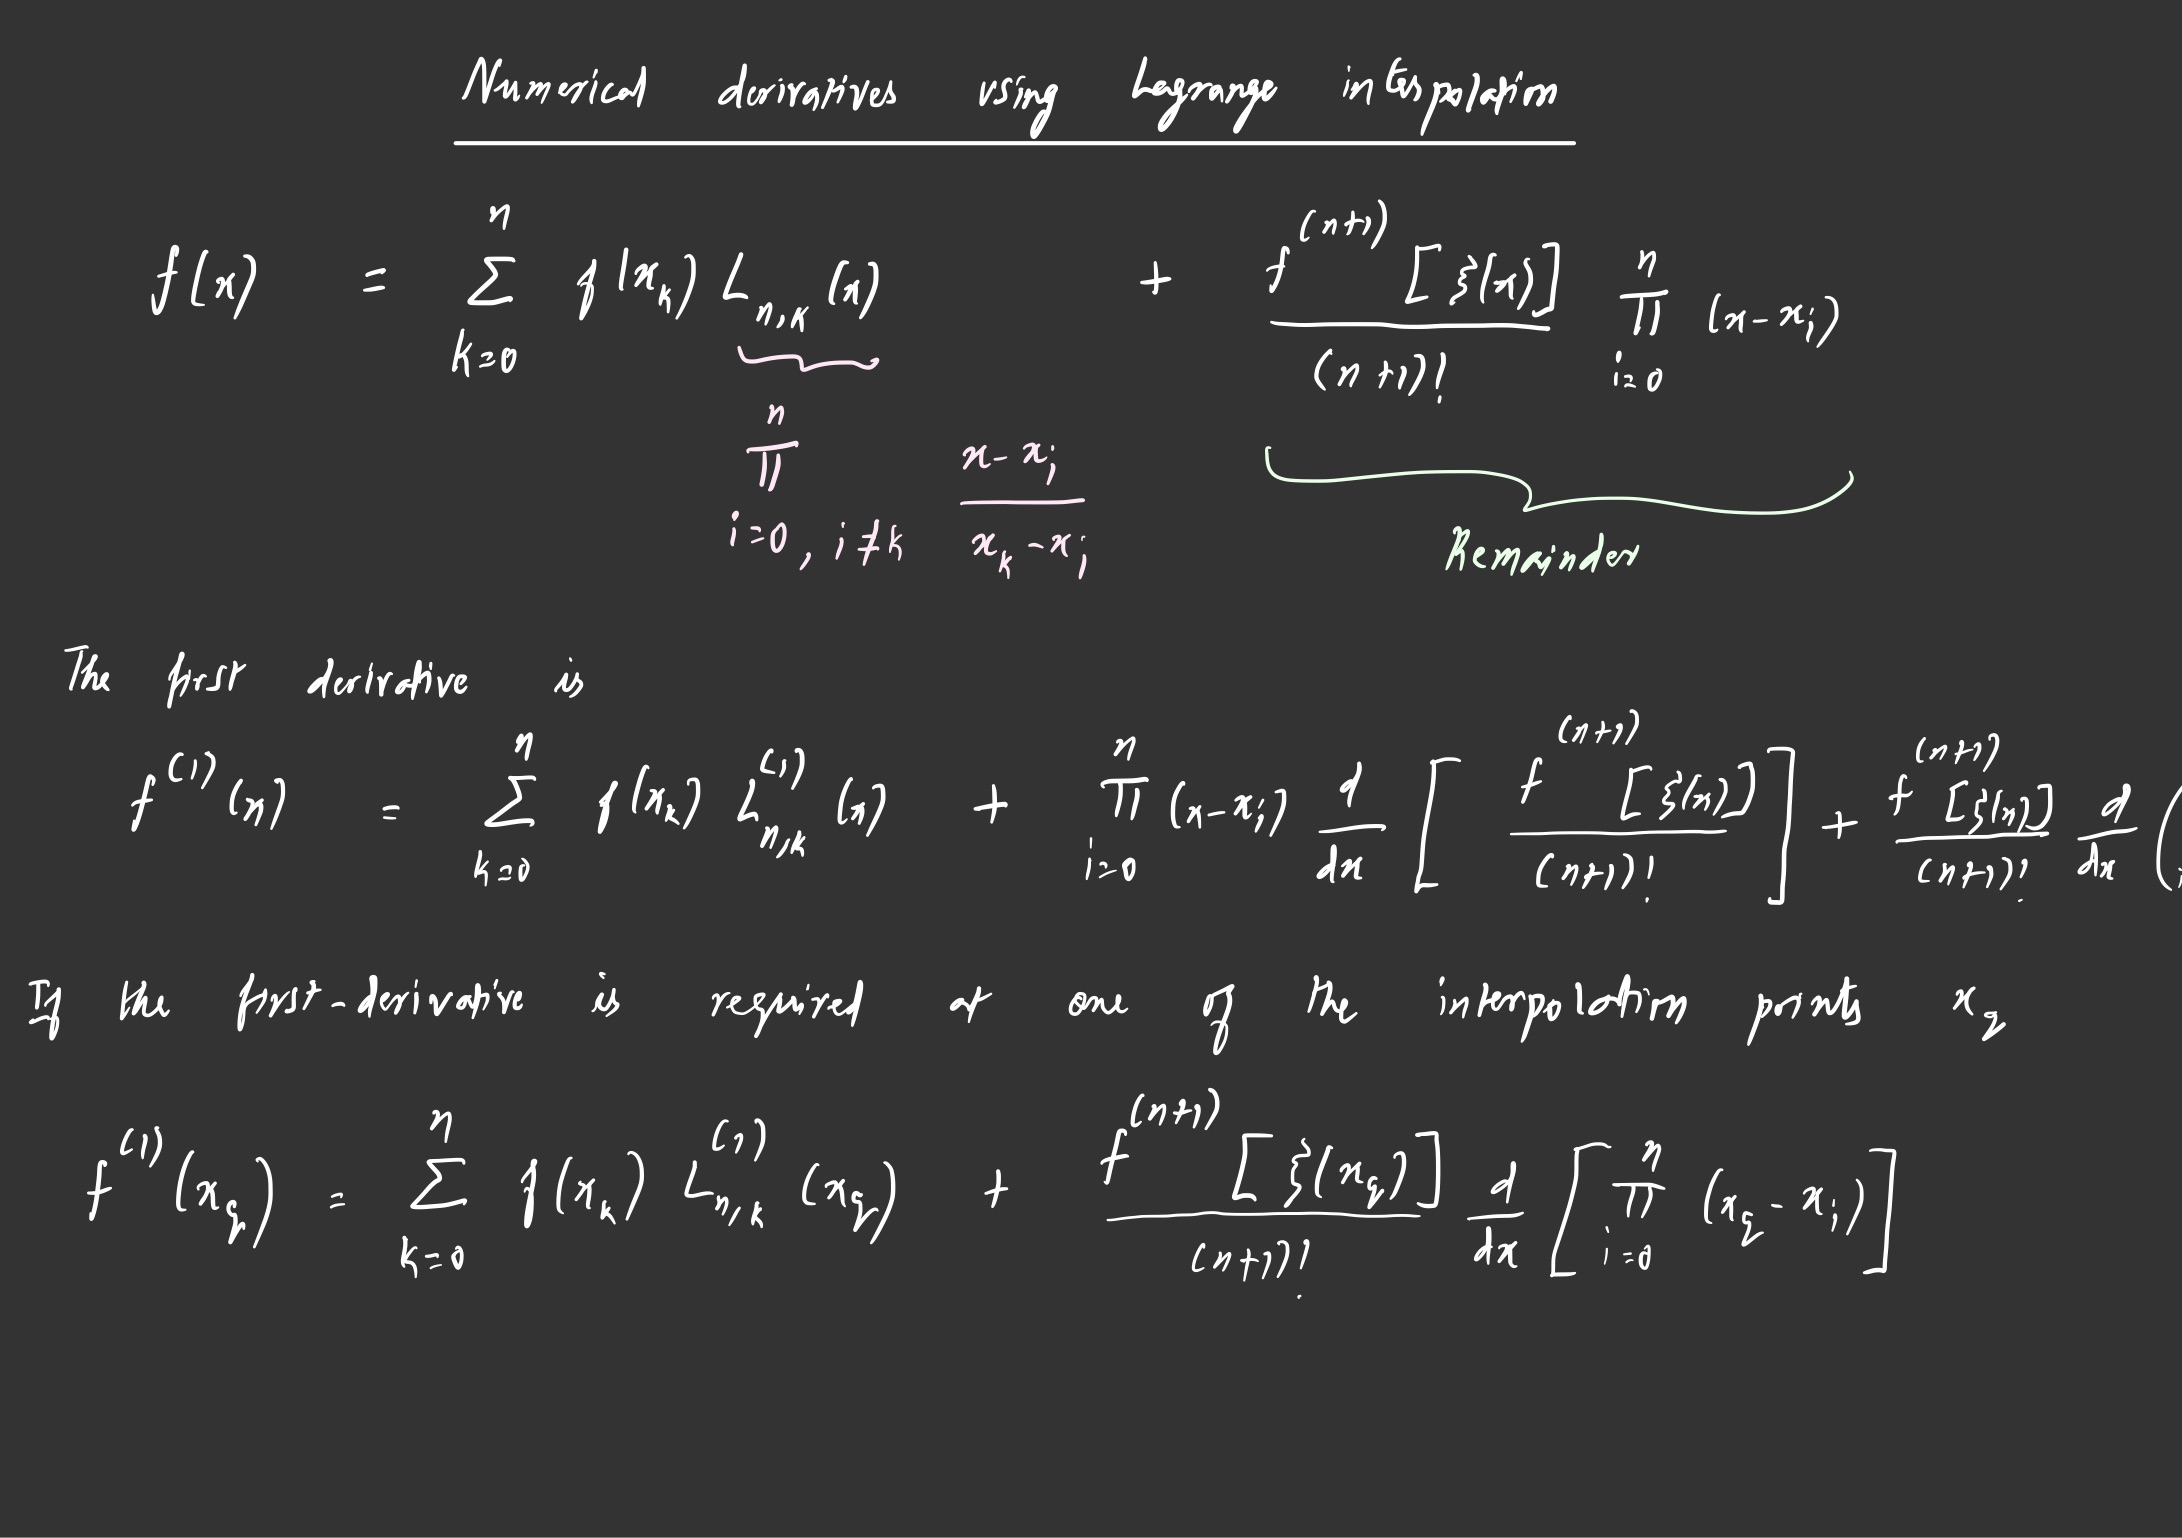 Numerical derivatives using Lagrange interpolation
f(x) = ∑_{k=0}^{n} f(x_k) L_{n,k}(x) + f^{(n+1)}[ξ(x)] / (n+1)! ∏_{i=0}^{n} (x - x_i)
∏_{i=0, i≠k}^{n} (x - x_i) / (x_k - x_i)
Remainder
The first derivative is
f^{(1)}(x) = ∑_{k=0}^{n} f(x_k) L_{n,k}^{(1)}(x) + ∏_{i=0}^{n} (x - x_i) d/dx [ f^{(n+1)}[ξ(x)] / (n+1)! ] + f^{(n+1)}[ξ(x)] / (n+1)! d/dx (
If the first-derivative is required at one of the interpolation points x_q
f^{(1)}(x_q) = ∑_{k=0}^{n} f(x_k) L_{n,k}^{(1)}(x_q) + f^{(n+1)}[ξ(x_q)] / (n+1)! d/dx [ ∏_{i=0}^{n} (x_q - x_i) ]